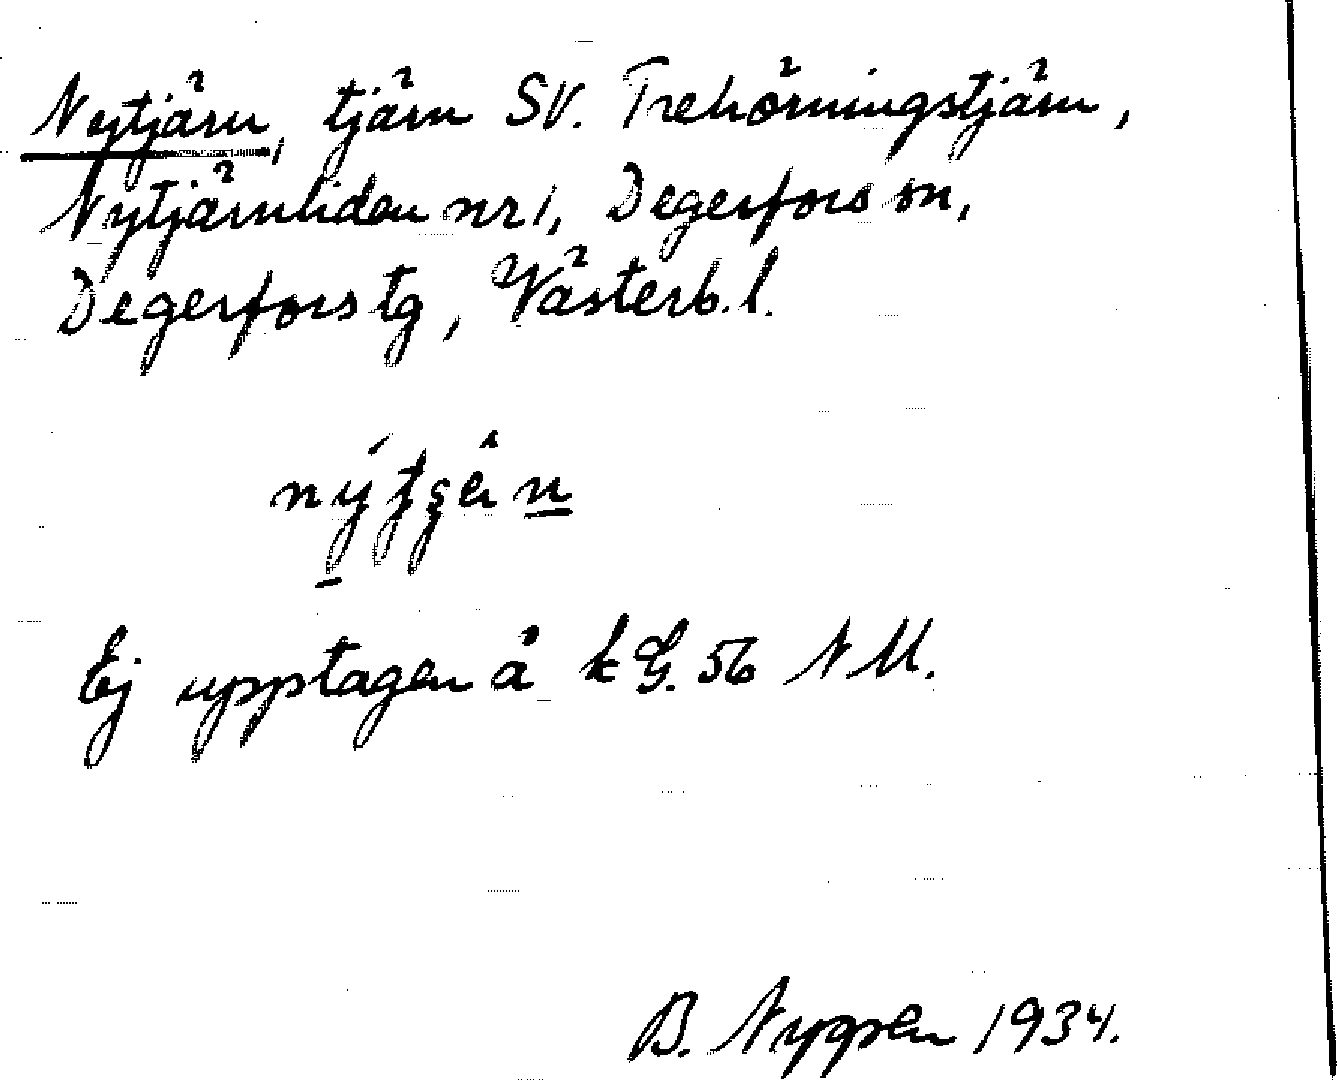 Nytjärn, tjärn SV. Trehörningstjärn,
Nytjärnliden nr 1, Degerfors sn,
Degerfors tg, Västerb. l.
Ej upptagen å k G. 56 N M.
B. Nygren 1934.